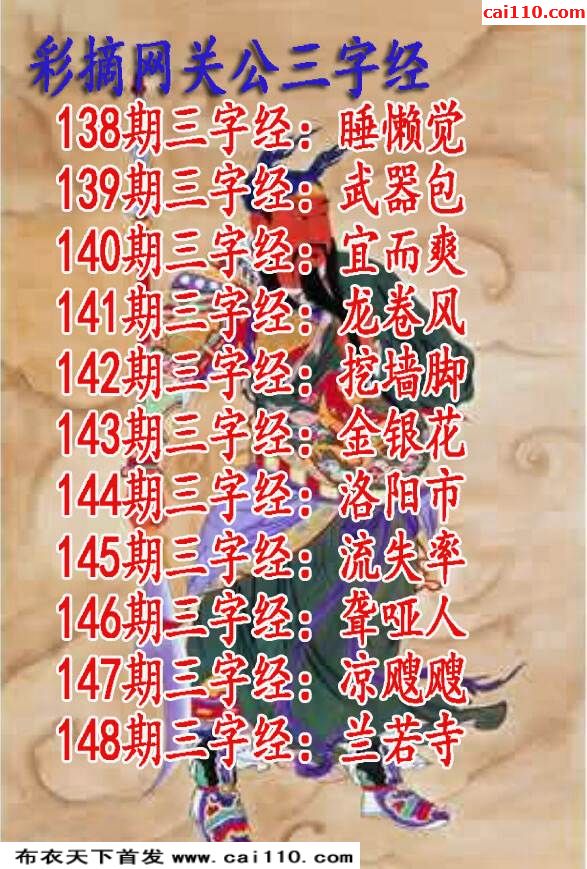 cai110.com
彩摘网关公三字经
138期三字经：睡懒觉
139期三字经：武器包
140期三字经：宜而爽
141期三字经：龙卷风
142期三字经：挖墙脚
143期三字经：金银花
144期三字经：洛阳市
145期三字经：流失率
146期三字经：聋哑人
147期三字经：凉飕飕
148期三字经：兰若寺
布衣天下首发 www.cai110.com